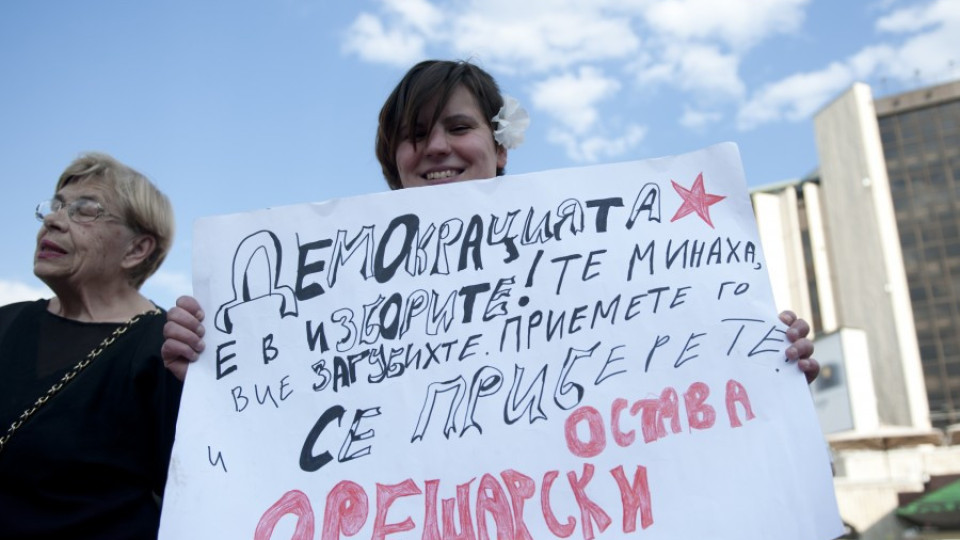 ДЕМОКРАЦИЯТА
Е В ИЗБОРИТЕ! ТЕ МИНАХА,
ВИЕ ЗАГУБИХТЕ. ПРИЕМЕТЕ ГО
И СЕ ПРИБЕРЕТЕ.
ОСТАВА
ОРЕШАРСКИ